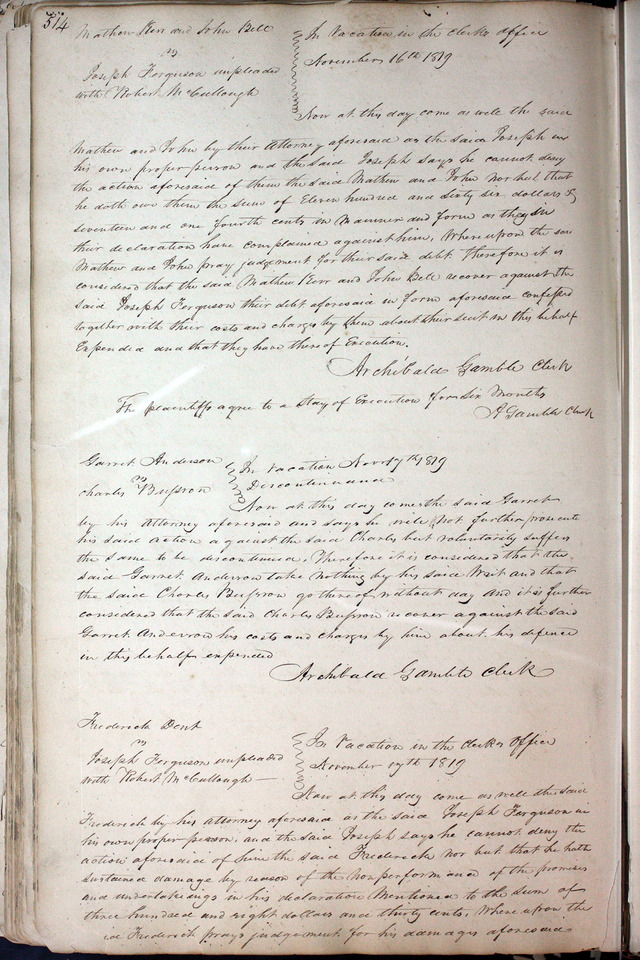 514
Mathew Kerr and John Bell
vs
Joseph Ferguson impleaded
with Robert McCullough
In Vacation in the clerks office
November 16th 1819
Now at this day come as well the said
Mathew and John by their Attorney aforesaid as the said Joseph in
his own proper person and the said Joseph says he cannot deny
the action aforesaid of them the said Mathew and John nor but that
he doth owe them the sum of Eleven hundred and sixty six dollars &
seventeen and one fourth cents in Manner and form as they in
their declaration have complained against him, Whereupon the said
Mathew and John pray judgment for their said debt. Therefore it is
considered that the said Mathew Kerr and John Bell recover against the
said Joseph Ferguson their debt aforesaid in form aforesaid confessed
together with their costs and charges by them about their suit in this behalf
Expended and that they have thereof Execution.
Archibald Gamble Clerk
The plaintiffs agree to a Stay of Execution for Six Months
A Gamble Clerk
Garret Anderson
vs
Charles Busron
In Vacation Novr 17th 1819
Discontinuance
Now at this day comes the said Garret
by his Attorney aforesaid and says he will not further prosecute
his said action against the said Charles but voluntarily suffers
the same to be discontinued. Therefore it is considered that the
said Garret Anderson take nothing by his said Writ and that
the said Charles Busron go thereof without day and it is further
considered that the said Charles Busron recover against the said
Garret Anderson his costs and charges by him about his defence
in this behalf expended
Archibald Gamble Clerk
Frederick Dent
vs
Joseph Ferguson impleaded
with Robert McCullough
In Vacation in the clerks Office
November 17th 1819
Now at this day come as well the said
Frederick by his attorney aforesaid as the said Joseph Ferguson in
his own proper person, and the said Joseph says he cannot deny the
action aforesaid of him the said Frederick nor but that he hath
sustained damage by reason of the nonperformance of the promises
and undertakings in his declaration Mentioned to the Sum of
three hundred and eight dollars and thirty cents, Whereupon the
id Frederick prays judgement for his damages aforesaid